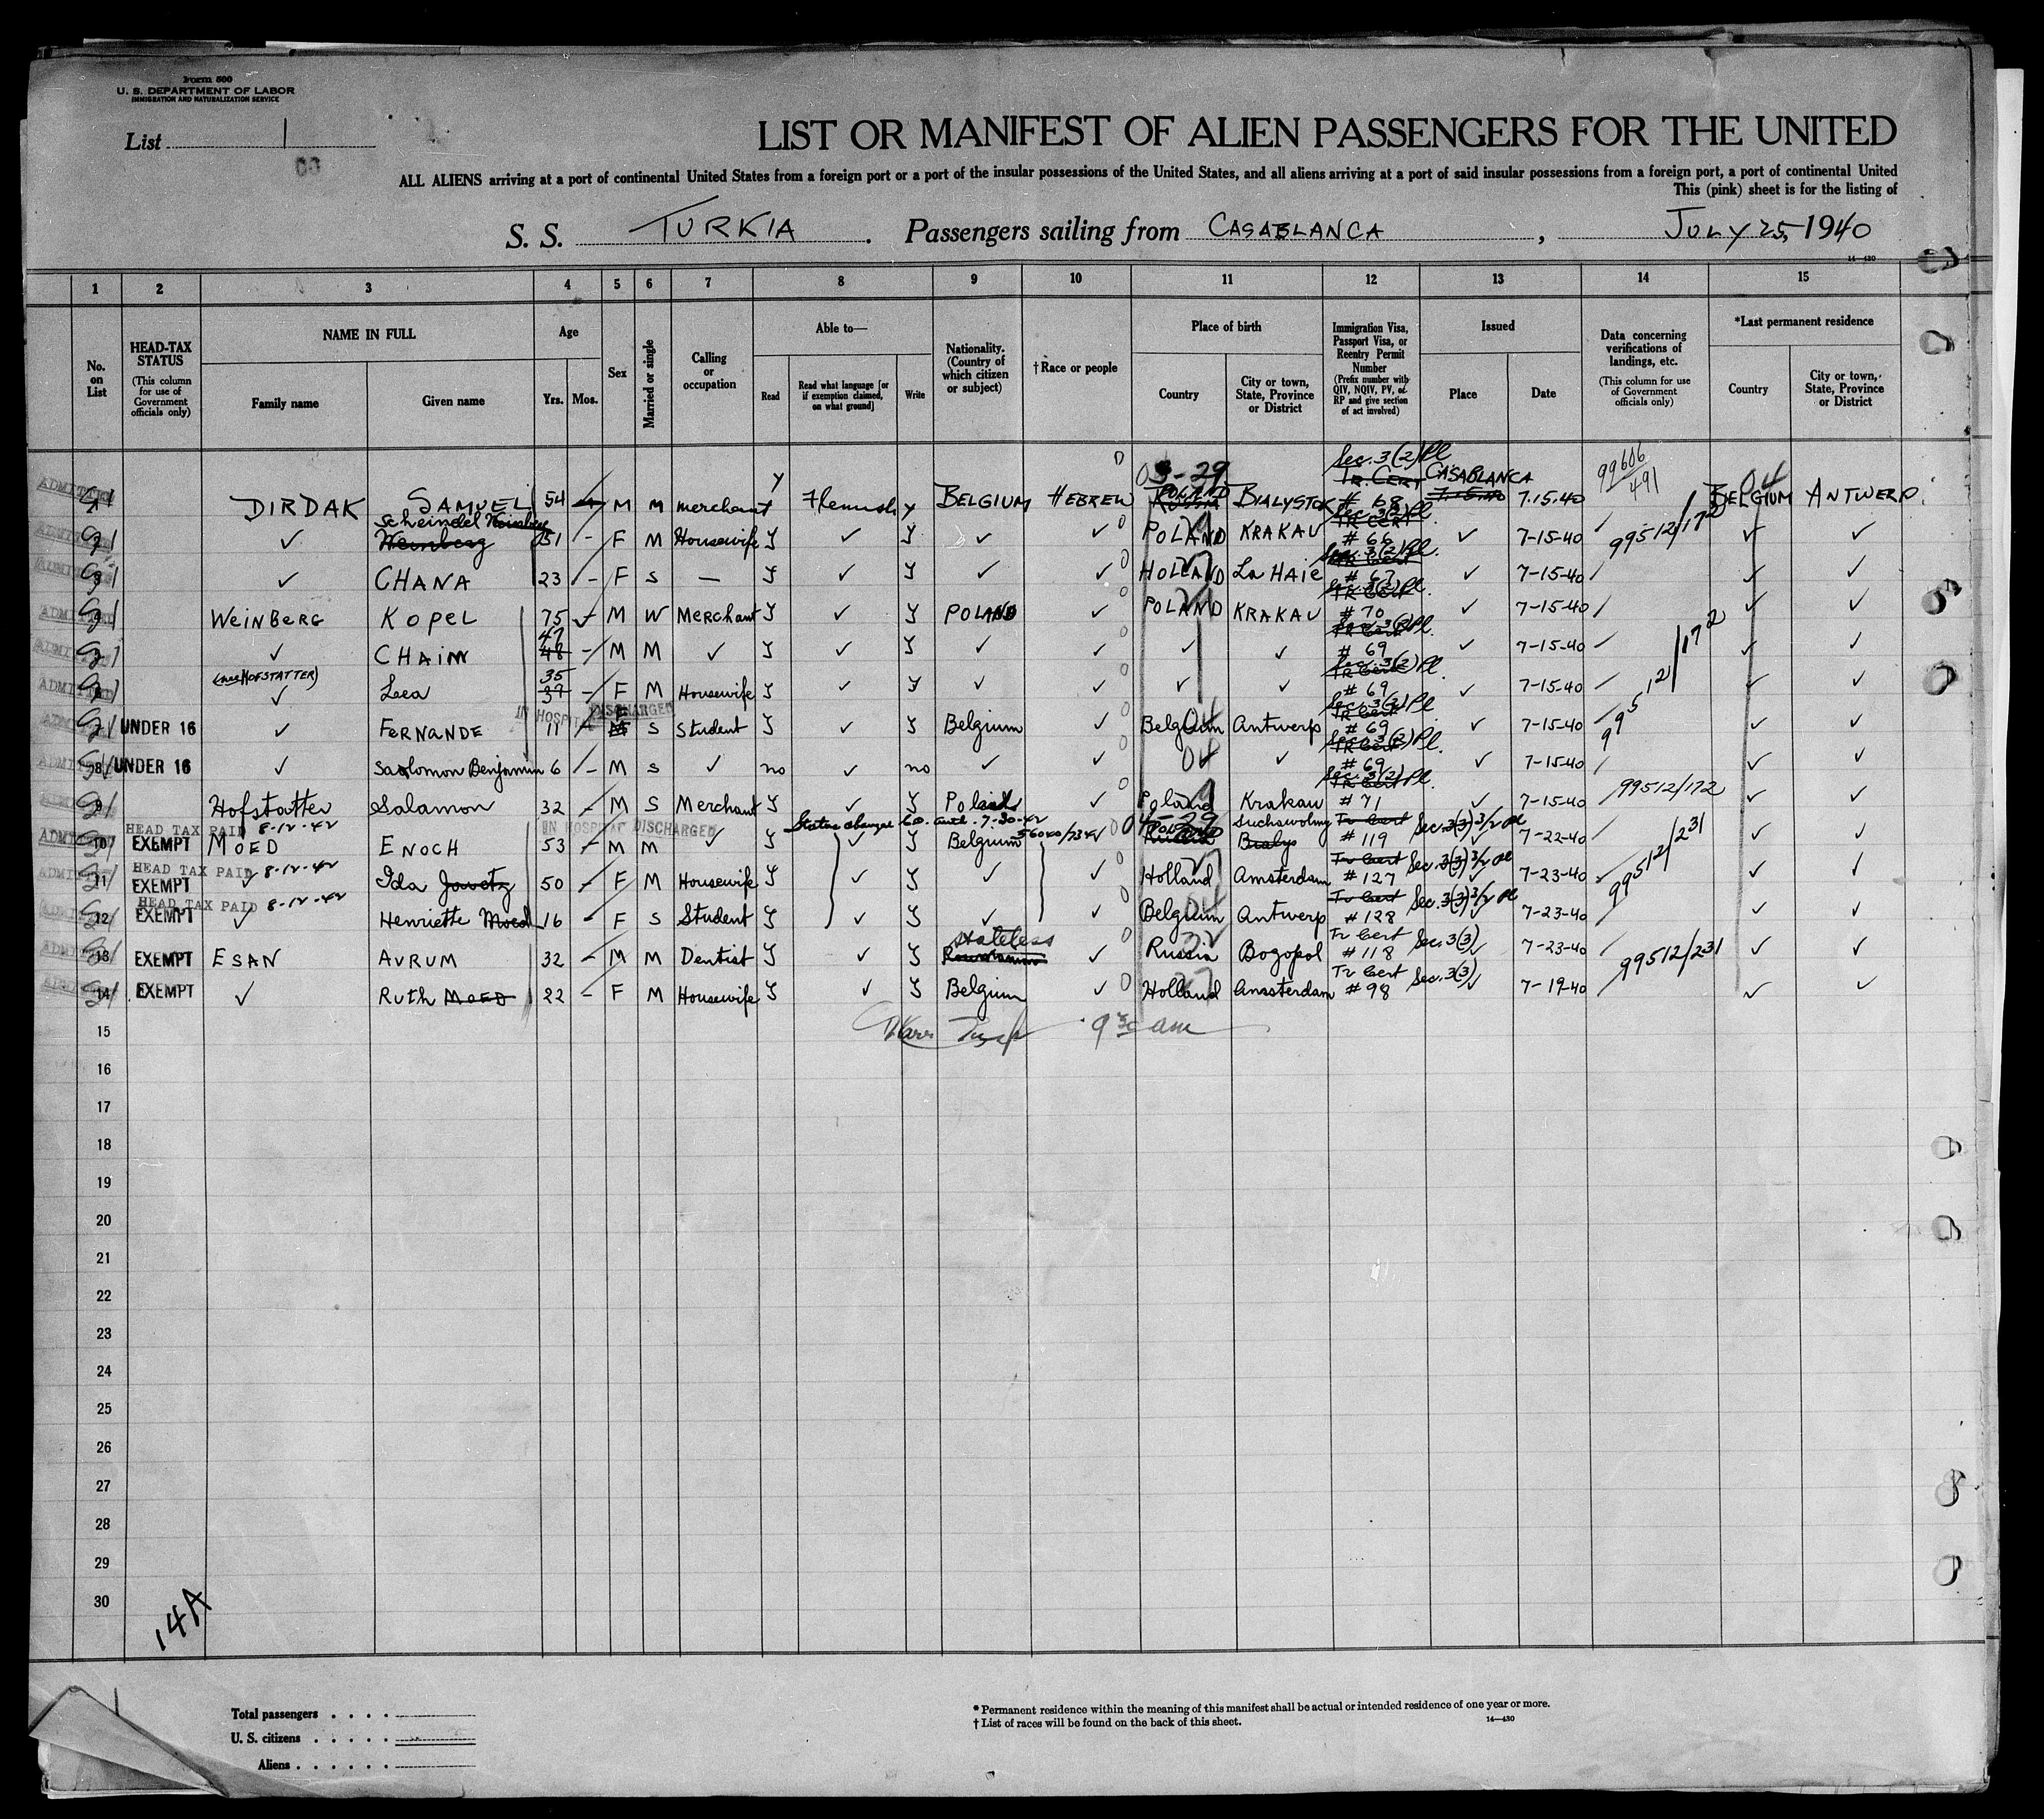 Form 500
U. S. DEPARTMENT OF LABOR
IMMIGRATION AND NATURALIZATION SERVICE
List 1
LIST OR MANIFEST OF ALIEN PASSENGERS FOR THE UNITED
ALL ALIENS arriving at a port of continental United States from a foreign port or a port of the insular possessions of the United States, and all aliens arriving at a port of said insular possessions from a foreign port, a port of continental United
This (pink) sheet is for the listing of
S. S. TURKIA. Passengers sailing from CASABLANCA, JULY 25, 1940
14—430
1 2 3 4 5 6 7 8 9 10 11 12 13 14 15
No. on List
HEAD-TAX STATUS (This column for use of Government officials only)
NAME IN FULL
Family name
Given name
Age
Yrs. Mos.
Sex
Married or single
Calling or occupation
Able to—
Read
Read what language [or if exemption claimed, on what ground]
Write
Nationality. (Country of which citizen or subject)
†Race or people
Place of birth
Country
City or town, State, Province or District
Immigration Visa, Passport Visa, or Reentry Permit Number (Prefix number with QIV, NQIV, PV, or RP and give section of act involved)
Issued
Place
Date
Data concerning verifications of landings, etc. (This column for use of Government officials only)
*Last permanent residence
Country
City or town, State, Province or District
Sec. 3(2) Pl
03-29 99606/491 04
ADMITTED DIRDAK SAMUEL 54 M M merchant y Flemish y BELGIUM HEBREW POLAND RUSSIA BIALYSTOK TR. CERT # 68 CASABLANCA 7.15.40 BELGIUM ANTWERP
ADMITTED ✓ Scheindel Weinberg Weinberg 51 - F M Housewife Y ✓ Y ✓ ✓ POLAND KRAKAU Sec. 3(2) Pl. TR CERT # 66 ✓ 7-15-40 99512/172 ✓ ✓
ADMITTED ✓ CHANA 23 - F S — Y ✓ Y ✓ ✓ HOLLAND La HAIE Sec. 3(2) Pl. # 67 ✓ 7-15-40 ✓ ✓
ADMITTED WEINBERG KOPEL 75 M W Merchant Y ✓ Y POLAND ✓ POLAND KRAKAU Sec. 3(2) Pl. TR Cert # 70 ✓ 7-15-40 ✓ ✓
ADMITTED ✓ CHAIM 47 48 - M M ✓ Y ✓ Y ✓ ✓ ✓ ✓ Sec. 3(2) Pl. TR Cert # 69 ✓ 7-15-40 ✓ ✓
ADMITTED (née HOFSTATTER) ✓ Leea 35 39 - F M Housewife Y ✓ Y ✓ ✓ ✓ ✓ Sec. 3(2) Pl. TR Cert # 69 ✓ 7-15-40 99512/172 ✓ ✓
IN HOSPITAL DISCHARGED
ADMITTED UNDER 16 ✓ FERNANDE 11 F M S Student Y ✓ Y Belgium ✓ Belgium Antwerp Sec. 3(2) Pl TR Cert # 69 ✓ 7-15-40 ✓ ✓
ADMITTED 8 UNDER 16 ✓ Salomon Benjamin 6 - M S ✓ no ✓ no ✓ ✓ 04 ✓ Sec. 3(2) Pl. TR Cert # 69 ✓ 7-15-40 ✓ ✓
9 Hofstatter Salamon 32 - M S Merchant Y ✓ Y Poland ✓ Poland Krakau Sec. 3(2) Pl. TR Cert # 71 ✓ 7-15-40 99512/172 ✓ ✓
HEAD TAX PAID 8-12-42 IN HOSPITAL DISCHARGED Status change C.O. auth. 7-30-42 56040/734 04-29
ADMITTED 10 EXEMPT MOED ENOCH 53 - M M ✓ Y ✓ Y Belgium POLAND Russia Suchowoly Bialys Tr Cert # 119 Sec. 3(3) 3/2 Pl 7-22-40 ✓ ✓
HEAD TAX PAID 8-12-42
ADMITTED 11 EXEMPT ✓ Ida Javetz 50 - F M Housewife Y ✓ Y ✓ ✓ Holland Amsterdam Tr Cert # 127 Sec. 3(3) 3/2 Pl 7-23-40 99512/231 ✓ ✓
HEAD TAX PAID 8-12-42
ADMITTED 12 EXEMPT ✓ Henriette Moed 16 - F S Student Y ✓ Y ✓ ✓ Belgium Antwerp Tr Cert # 128 Sec. 3(3) 3/2 Pl 7-23-40 ✓ ✓
ADMITTED 13 EXEMPT ESAN AVRUM 32 - M M Dentist Y ✓ Y Stateless Roumanian ✓ Russia Bogopol Tr Cert # 118 Sec. 3(3) ✓ 7-23-40 99512/231 ✓ ✓
ADMITTED 14 EXEMPT ✓ Ruth MOED 22 - F M Housewife Y ✓ Y Belgium ✓ Holland Amsterdam Tr Cert # 98 Sec. 3(3) ✓ 7-19-40 ✓ ✓
15 9 30 am
16
17
18
19
20
21
22
23
24
25
26
27
28
29
30
14A
Total passengers
U. S. citizens
Aliens
* Permanent residence within the meaning of this manifest shall be actual or intended residence of one year or more.
† List of races will be found on the back of this sheet.
14—430